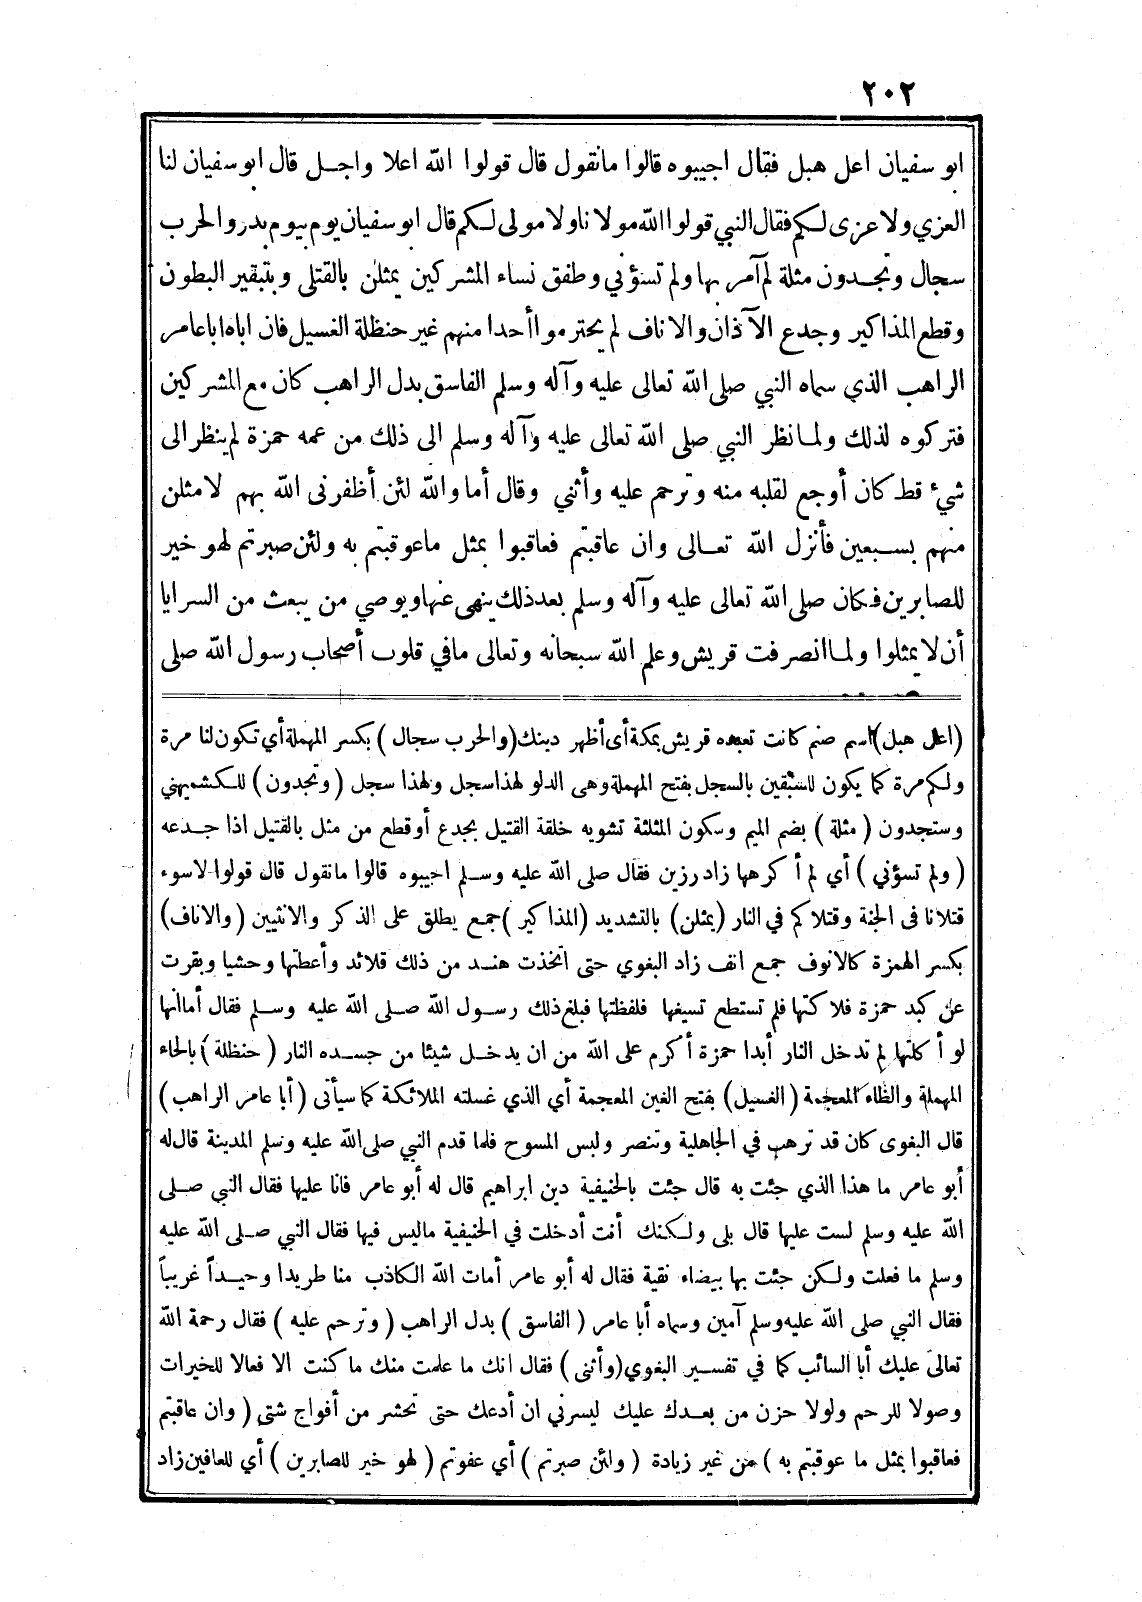 ٢٠٢
ابو سفيان اعل هبل فقال اجيبوه قالوا مانقول قال قولوا الله اعلا واجـل قال ابوسفيان لنا
العزي ولاعزى لـكم فقال النبي قولوا الله مولانا ولا مولى لـكم قال ابو سفيان يوم بيوم بدر والحرب
سجال وتجـدون مثلة لم آمر بها ولم تسؤني وطفق نساء المشركين يمثلن بالقتلى وبتبقير البطون
وقطع المذاكير وجدع الآذان والاناف لم يحترموا أحدا منهم غير حنظلة الغسيل فان اباه اباعامر
الراهب الذي سماه النبي صلى الله تعالى عليه وآله وسلم الفاسق بدل الراهب كان مع المشركين
فتركوه لذلك ولما نظر النبي صلى الله تعالى عليه وآله وسلم الى ذلك من عمه حمزة لم ينظر الى
شيء قط كان أوجع لقلبه منه وترحم عليه وأثني وقال أما والله لئن أظفرنى الله بهم لامثلن
منهم بسـبعين فأنزل الله تعـالى وان عاقبتم فعاقبوا بمثل ماعوقبتم به ولئن صبرتم لهو خير
للصابرين فكان صلى الله تعالى عليه وآله وسلم بعد ذلك ينهى عنها ويوصي من يبعث من السرايا
أن لا يمثلوا ولما انصرفت قريش وعلم الله سبحانه وتعالى مافي قلوب أصحاب رسول الله صلى
(اعل هبل) اسم صنم كانت تعبده قريش بمكة أى أظهر دينك (والحرب سجال) بكسر المهملة أي تكون لنا مرة
ولكم مرة كما يكون للمستقين بالسجل بفتح المهملة وهى الدلو لهذا سجل ولهذا سجل (وتجدون) للـكشميهني
وستجدون (مثلة) بضم الميم وسكون المثلثة تشويه خلقة القتيل بجدع أوقطع من مثل بالقتيل اذا جـدعه
(ولم تسؤني) أي لم أكرهها زاد رزين فقال صلى الله عليه وسـلم اجيبوه قالوا مانقول قال قولوا لاسوء
قتلانا فى الجنة وقتلاكم في النار (يمثلن) بالتشديد (المذاكير) جمع يطلق على الذكر والانثيين (والاناف)
بكسر الهمزة كالانوف جمع انف زاد البغوي حتى اتخذت هنـد من ذلك قلائد وأعطتها وحشيا وبقرت
عن كبد حمزة فلاكتها فلم تستطع تسيغها فلفظتها فبلغ ذلك رسـول الله صـلى الله عليه وسـلم فقال أما انها
لو أكلتها لم تدخل النار أبدا حمزة أكرم على الله من ان يدخـل شيئا من جسـده النار (حنظلة) بالحاء
المهملة والظاء المعجمة (الغسيل) بفتح الغين المعجمة أي الذي غسلته الملائكة كما سيأتى (أبا عامر الراهب)
قال البغوى كان قد ترهب في الجاهلية وتنصر ولبس المسوح فلما قدم النبي صلى الله عليه وسلم المدينة قال له
أبو عامر ما هذا الذي جئت به قال جئت بالحنيفية دين ابراهيم قال له أبو عامر فانا عليها فقال النبي صـلى
الله عليه وسلم لست عليها قال بلى ولـكنك أنت أدخلت في الحنيفية ماليس فيها فقال النبي صـلى الله عليه
وسلم ما فعلت ولـكن جئت بها بيضاء نقية فقال له أبو عامر أمات الله الكاذب منا طريدا وحيـداً غريباً
فقال النبي صلى الله عليه وسلم آمين وسماه أبا عامر (الفاسق) بدل الراهب (وترحم عليه) فقال رحمة الله
تعالى عليك أبا السائب كما في تفسـير البغوي (وأثنى) فقال انك ما علمت منك ما كنت الا فعالا للخيرات
وصولا للرحم ولولا حزن من بعـدك عليك ليسرني ان أدعك حتى تحشر من أفواج شتى (وان عاقبتم
فعاقبوا بمثل ما عوقبتم به) من غير زيادة (ولئن صبرتم) أي عفوتم (لهو خير للصابرين) أي للعافين زاد